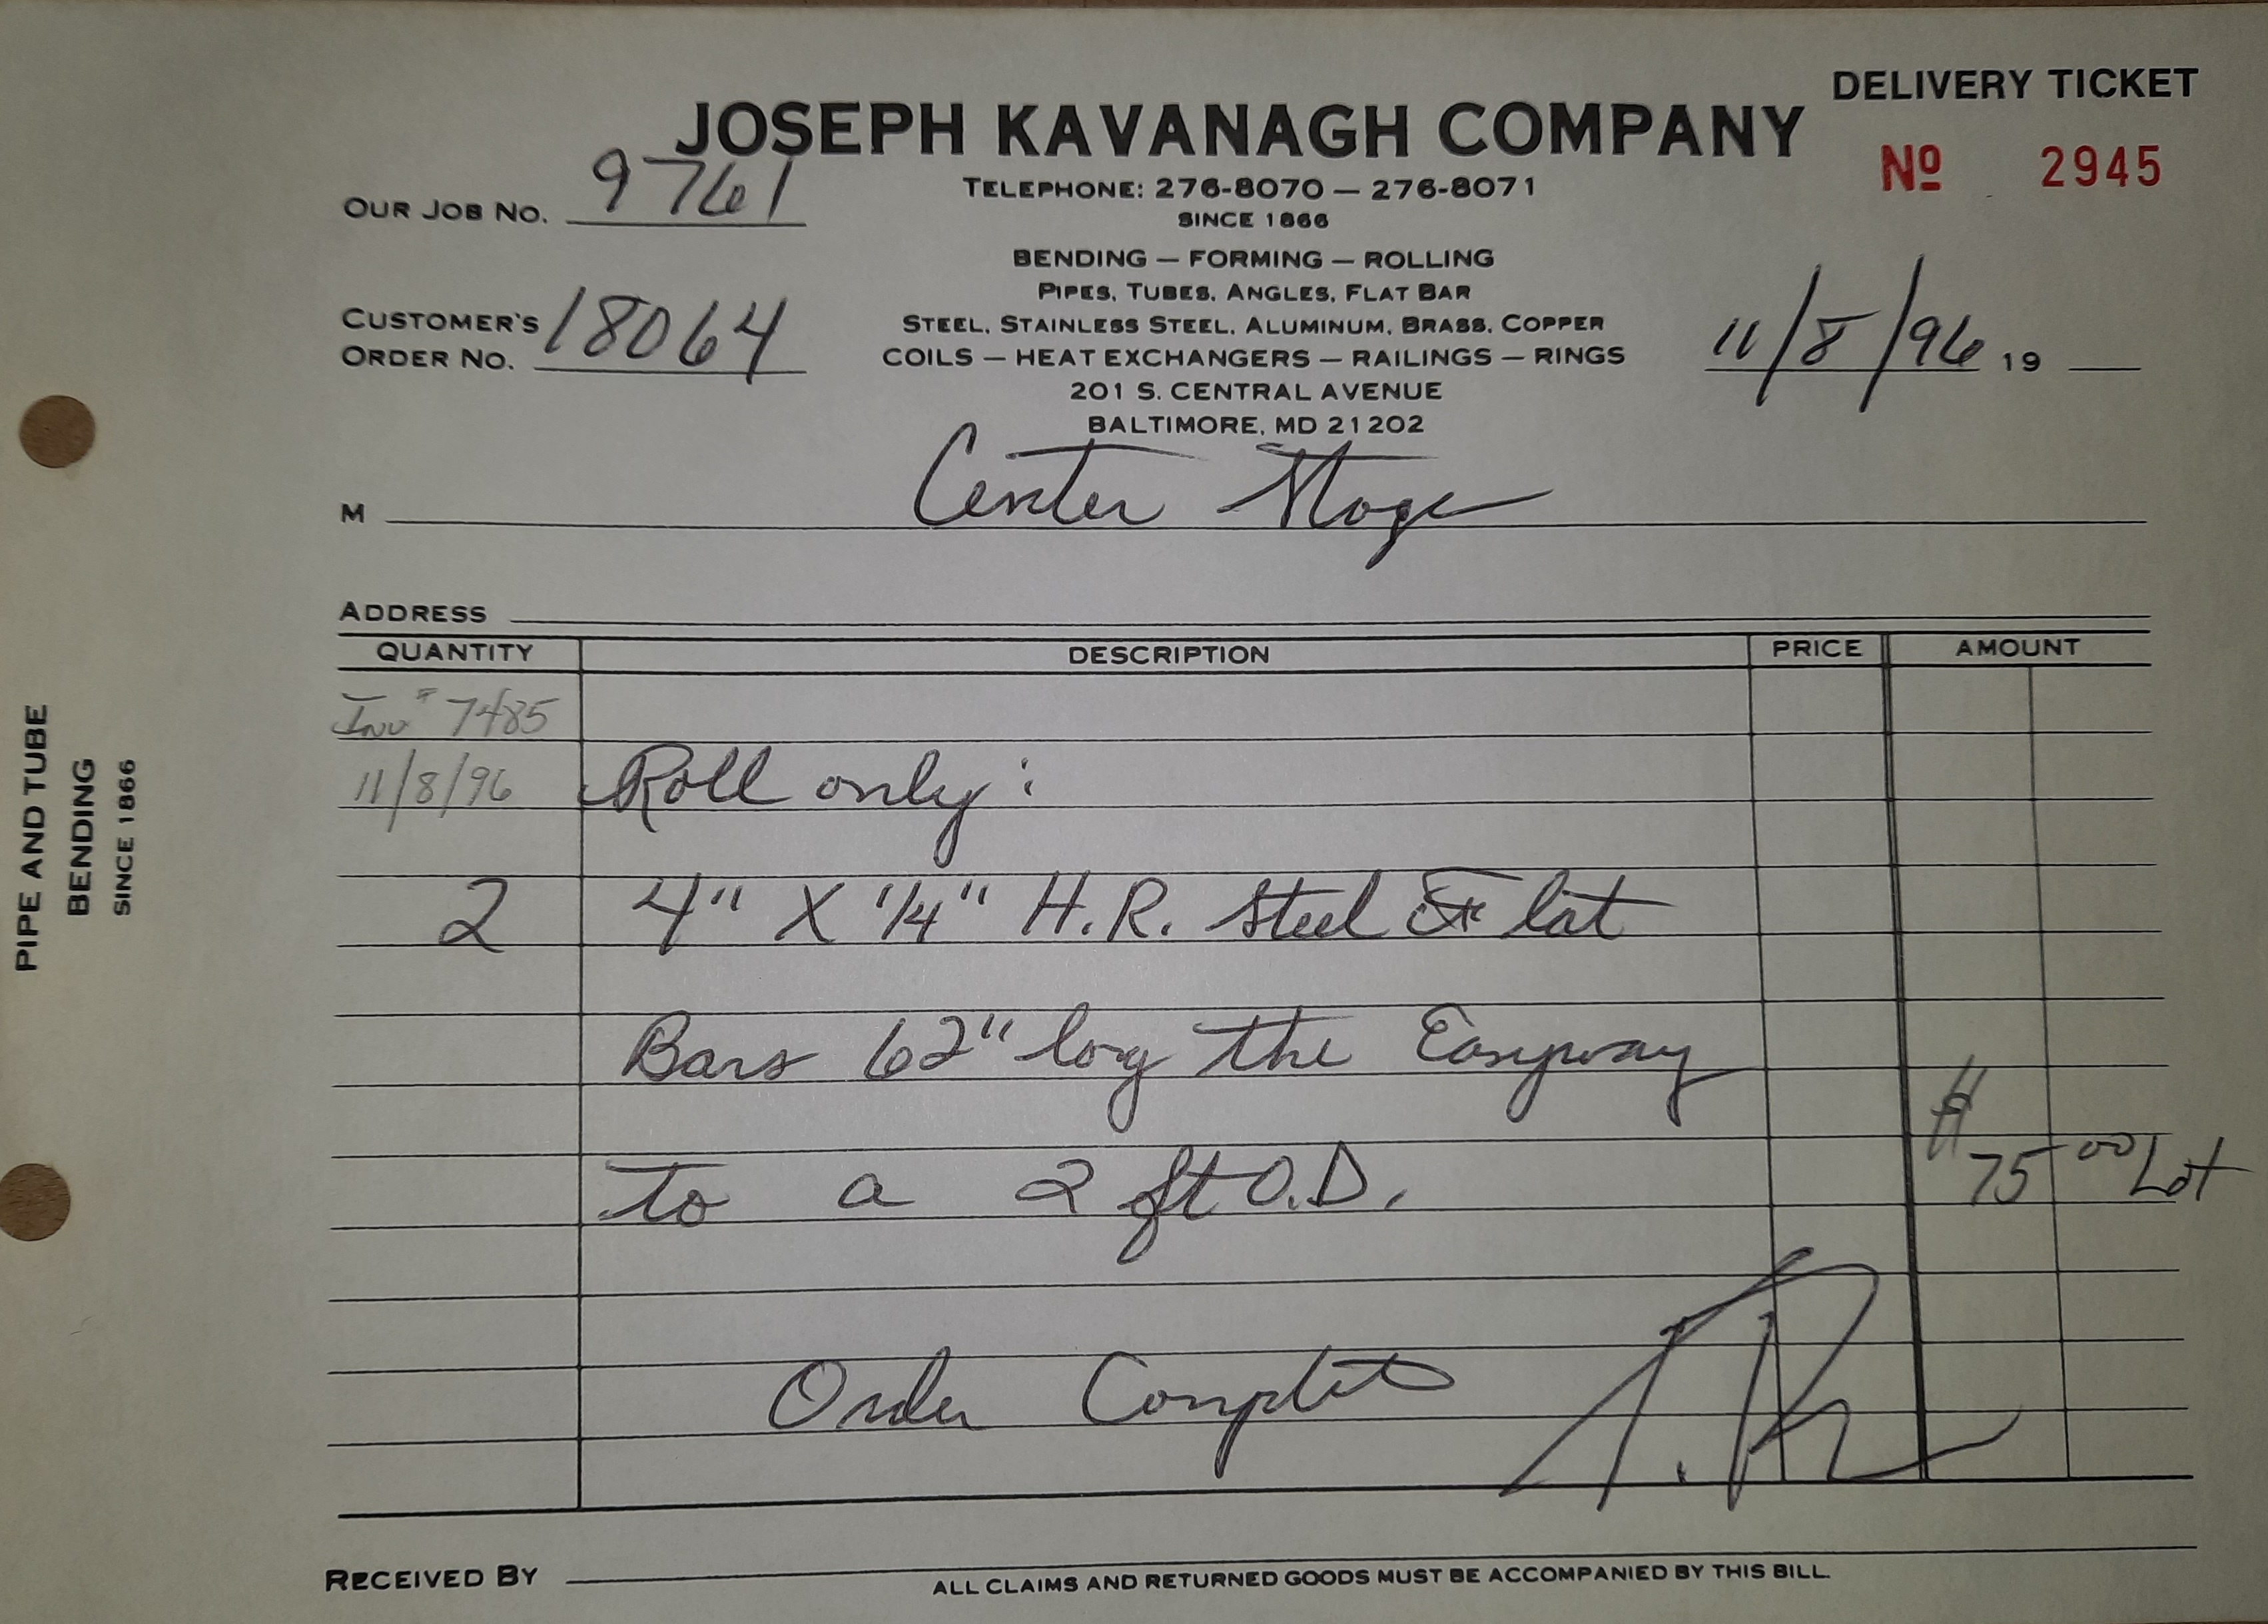 DELIVERY TICKET
JOSEPH KAVANAGH COMPANY
No 2945
OUR JOB NO. 9761
TELEPHONE: 276-8070 — 276-8071
SINCE 1866
BENDING — FORMING — ROLLING
PIPES, TUBES, ANGLES, FLAT BAR
CUSTOMER'S
ORDER NO. 18064
STEEL, STAINLESS STEEL, ALUMINUM, BRASS, COPPER
COILS — HEAT EXCHANGERS — RAILINGS — RINGS
11/8/96 19
201 S. CENTRAL AVENUE
BALTIMORE, MD 21202
M Center Stage
ADDRESS
QUANTITY DESCRIPTION PRICE AMOUNT
Inv # 7485
11/8/96 Roll only:
2 4" X 1/4" H.R. Steel Flat
Bars 62" long the Easyway
to a 2 ft O.D. $75 00 Lot
Order Complete
RECEIVED BY
ALL CLAIMS AND RETURNED GOODS MUST BE ACCOMPANIED BY THIS BILL.
PIPE AND TUBE
BENDING
SINCE 1866